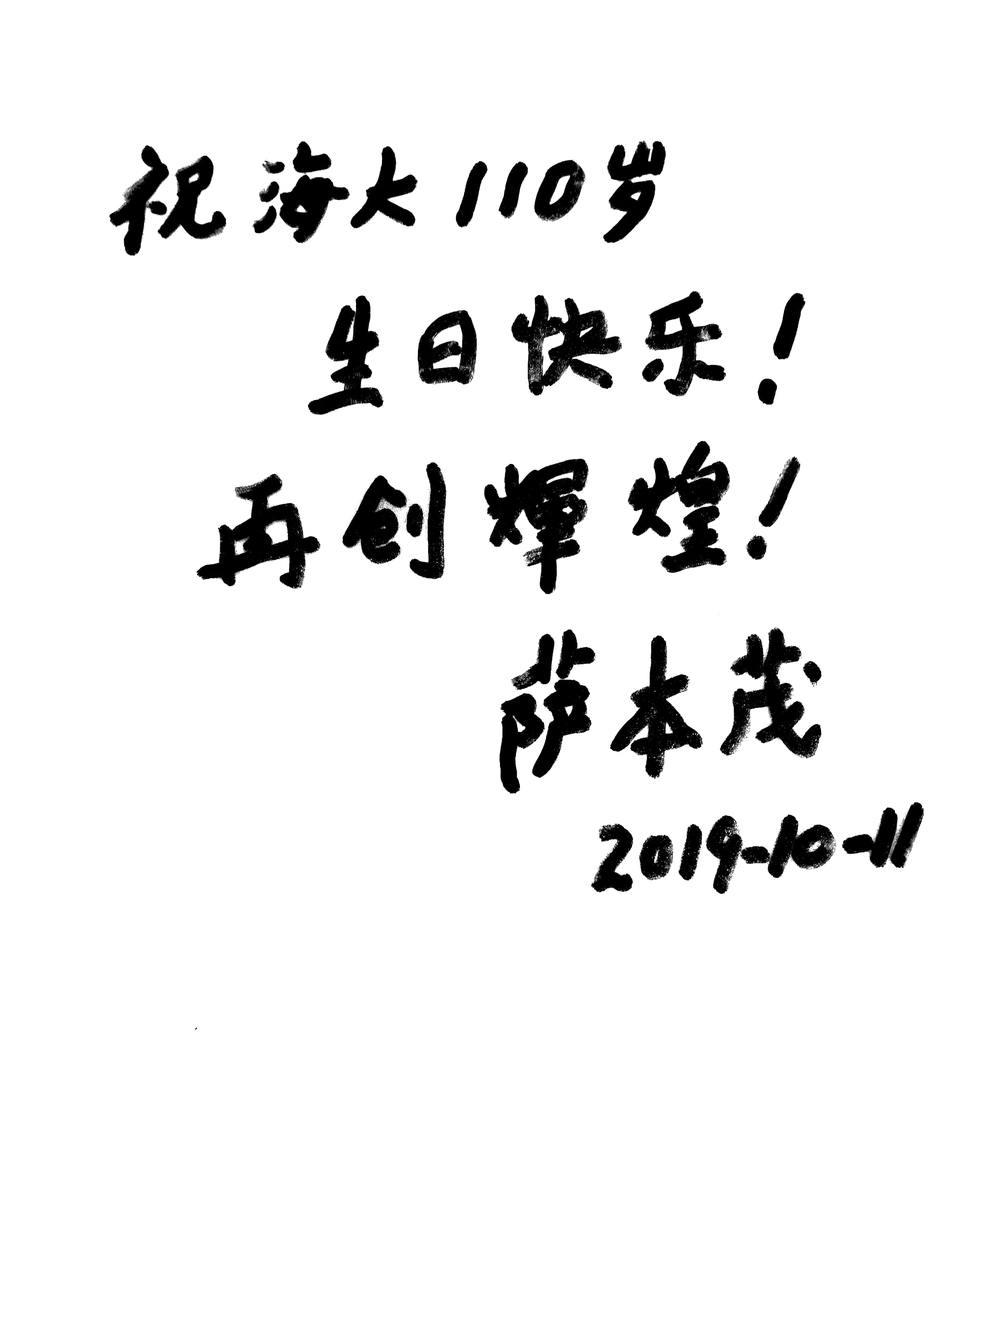 祝海大110岁
生日快乐！
再创煇煌！
萨本茂
2019-10-11